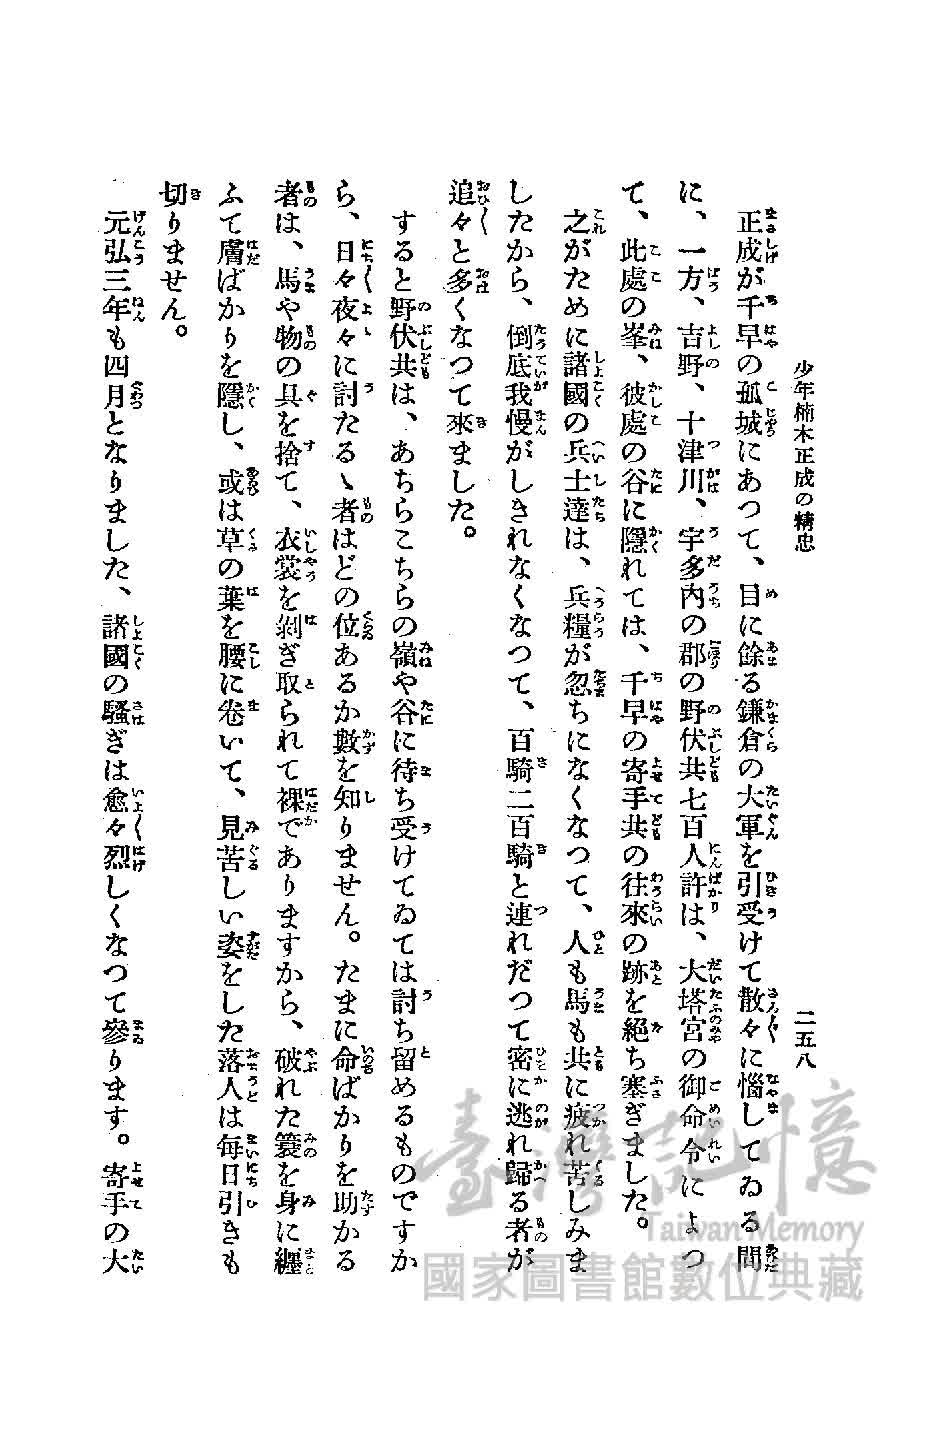 少年楠木正成の精忠
二五八
正成が千早の孤城にあつて、目に餘る鎌倉の大軍を引受けて散々に惱してゐる間
に、一方、吉野、十津川、宇多內の郡の野伏共七百人許は、大塔宮の御命令によつ
て、此處の峯、彼處の谷に隱れては、千早の寄手共の往來の跡を絕ち塞ぎました。
之がために諸國の兵士達は、兵糧が忽ちになくなつて、人も馬も共に疲れ苦しみま
したから、到底我慢がしきれなくなつて、百騎二百騎と連れだつて密に逃れ歸る者が
追々と多くなつて來ました。
すると野伏共は、あちらこちらの嶺や谷に待ち受けてゐては討ち留めるものですか
ら、日々夜々に討たるゝ者はどの位あるか數を知りません。たまに命ばかりを助かる
者は、馬や物の具を捨て、衣裳を剝ぎ取られて裸でありますから、破れた簑を身に纏
ふて膚ばかりを隱し、或は草の葉を腰に卷いて、見苦しい姿をした落人は每日引きも
切りません。
元弘三年も四月となりました、諸國の騷ぎは愈々烈しくなつて參ります。寄手の大
臺灣記憶
Taiwan Memory
國家圖書館數位典藏